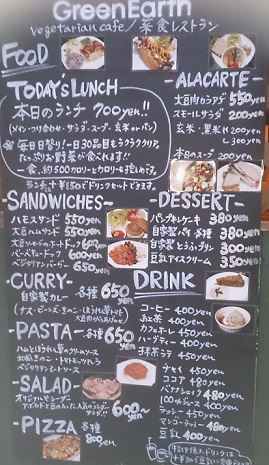 GreenEarth
vegetarian cafe/菜食レストラン
FOOD
TODAY'S LUNCH
本日のランチ 700yen!!
(メイン・つけ合わせ・サラダ・スープ・玄米 or パン)
毎日日替り!一日30品目
お野菜が食べれます!!
一食、約500カロリーと
ランチ+¥150でドリンクセットできます。
-ALACARTE-
大豆肉カラアゲ 550yen
スモールサラダ 200yen
玄米・黒米 R200yen
L300yen
本日のスープ 200yen
-SANDWICHES-
ハムサンド 550yen
大豆ハムサンド 550yen
大豆ソーセージホットドック 600yen
ベジタリアンバーガー 650yen
-DESSERT-
パンプキンケーキ 380yen
自家製パイ 各種 380yen
自家製とうふプリン 300yen
豆乳アイスクリーム 350yen
-CURRY-
自家製カレー 各種 650yen
(ナス・ビーンズ・きのこ・ほうれん草トマト
-PASTA- 各種650yen
ハムとほうれん草のクリームソース
和風きのこ・トマトミックス
ベジタリアンミートソース
-SALAD-
オリジナルヴィーガン
600〜yen
-PIZZA
各種
800yen
DRINK
コーヒー 400yen
紅茶 400yen
カフェオレ 450yen
ハーブティー 400yen
抹茶ラテ 450yen
チャイ 450yen
ココア 480yen
バナナシェイク 480yen
100%ジュース 400yen
ラッシー 450yen
マンゴーラッシー 480yen
豆乳 400yen